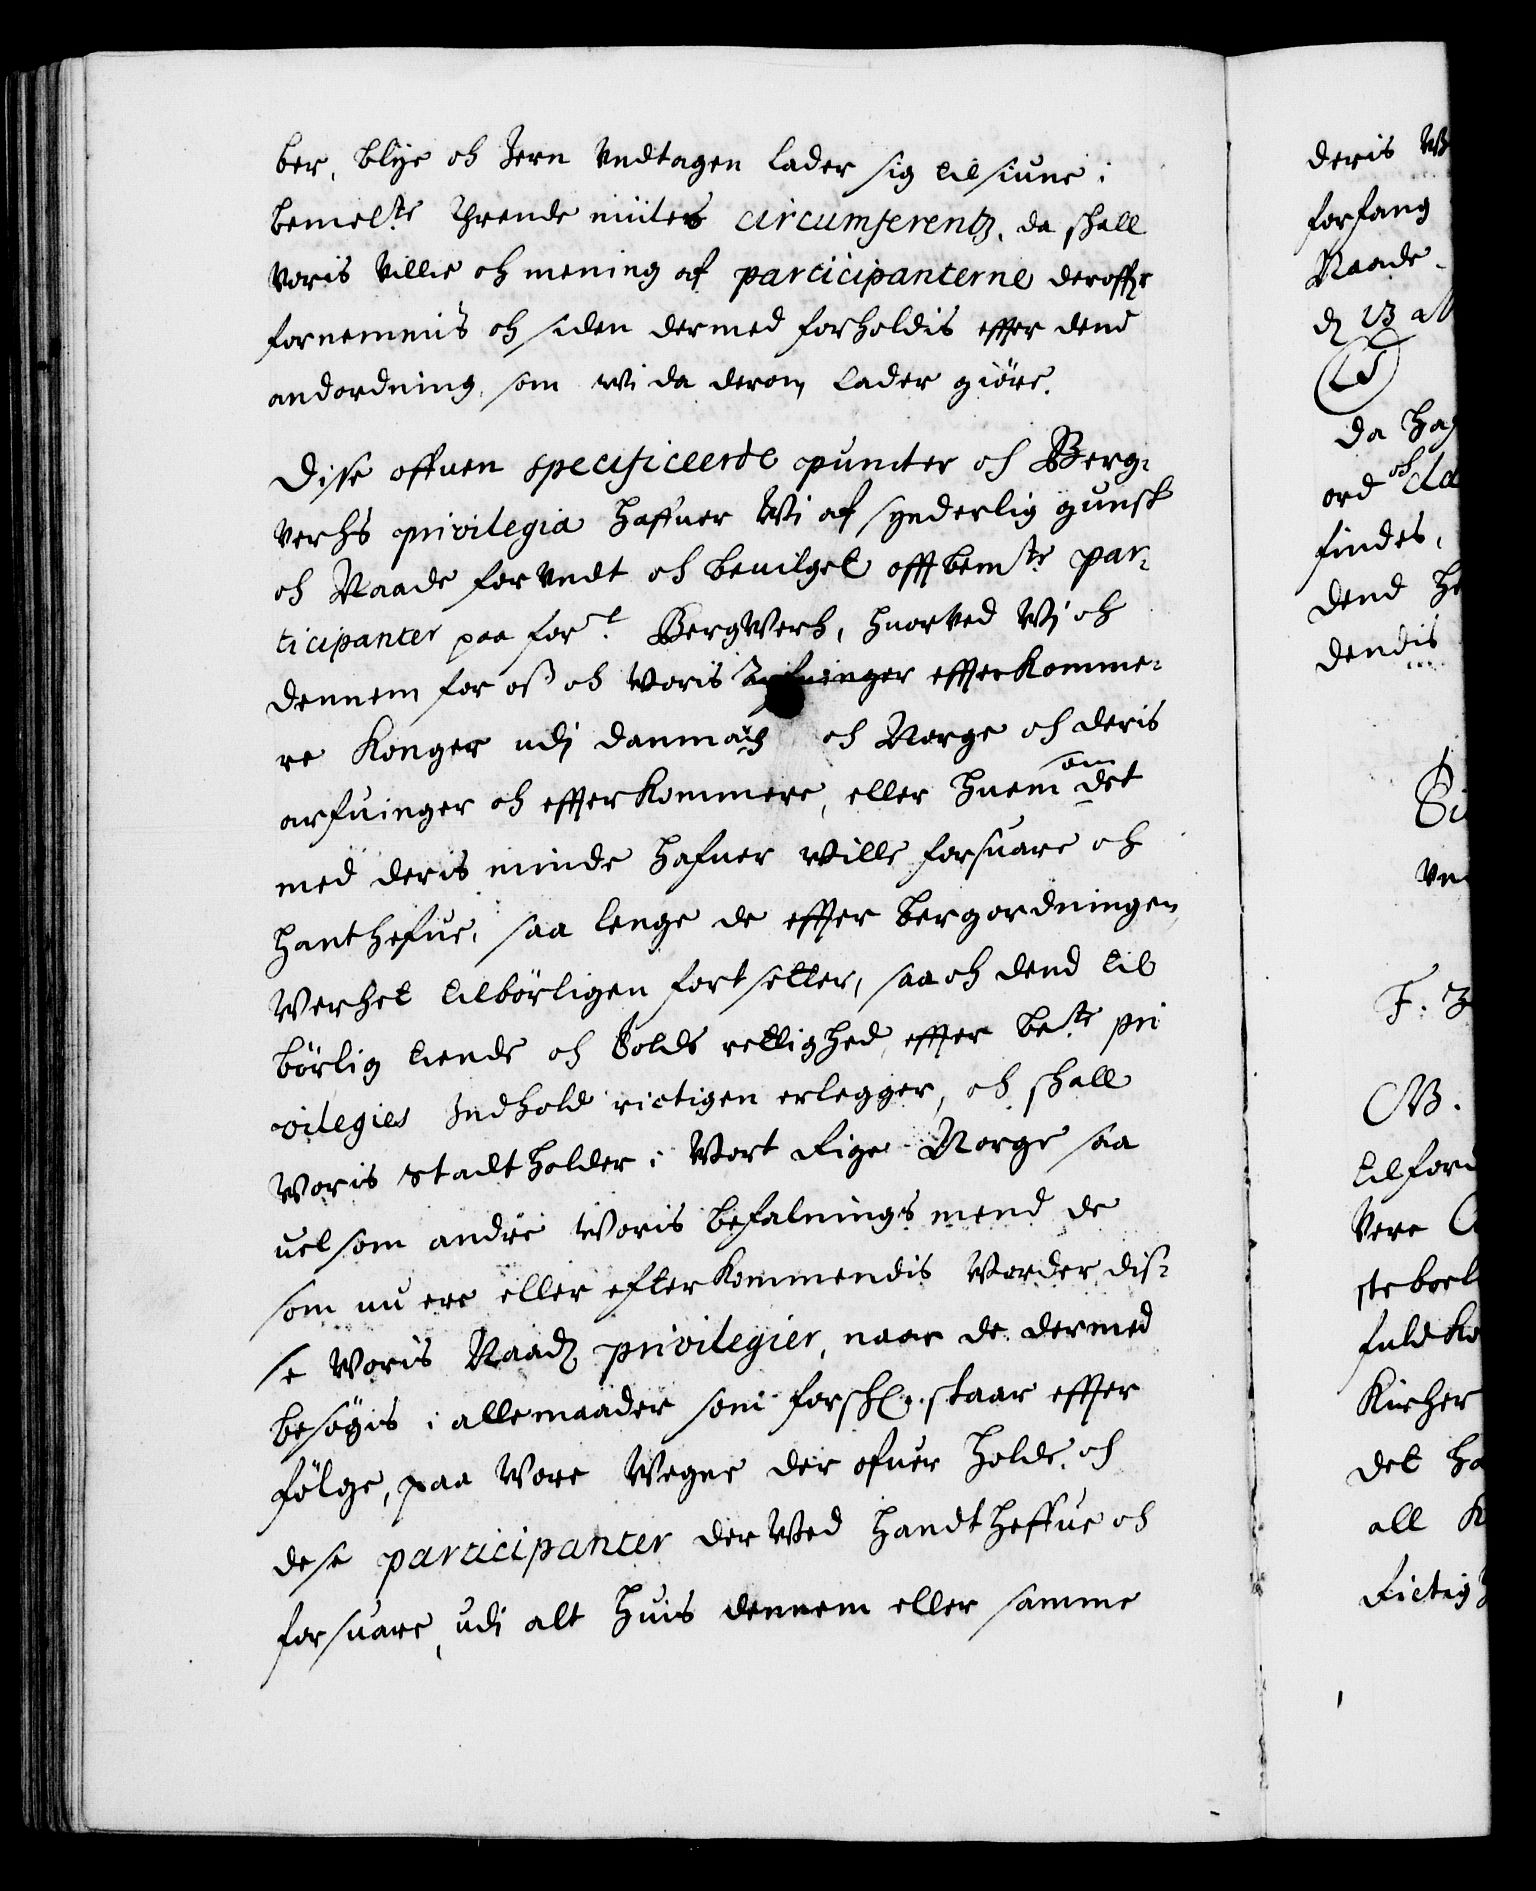 ber, blye och Jern undtagen lader sig tilsiune i
bemelte thrende miiles circumferentz, da skall
voris villie och mening af participanterne deroffr
fornemmis och siden dermed forholdis effter dend
andordning, som wi da derom lader giöre.
Disse offuen specificeerde puncter och Berg-
verks privilegia haffuer Wi af synderlig gunst
och Naade forundt och beuilget offtbemte par-
ticipanter paa fort Bergwerk, huorved Wi och
dennem for oss och Woris Arfuinger effterkomme-
re Konger udj Danmarck och Norge och deris
arfuinger och effterkommere, eller huem som det
med deris minde hafuer wille forsuare och
hanthefue, saa lenge de effter bergordningen
Werket tilbörligen fortsetter, saa och dend til
börlig tiende och Tolds rettighed effter bete pri
vilegies Indhold rictigen erlegger, och skall
Woris Stadtholder i Wort Rige Norge saa
uelsom andre Woris befalnings mend de
som nu ere eller efterkommendis Vorder dis-
se Woris Naadz privilegier, naar de dermed
besögis i allemaader som forsk. staar effter
fölge, paa Wore Wegne der ofuer holde, och
dese participanter derwed handtheffue och
forsuare, udi alt huis dennem eller samme
deris
forfang
Naade
d 23
LS
Da
ord och
findes,
dend
dendis
F. 3
tilford
Vere
fuldko
Kircher
det
all
Rictig